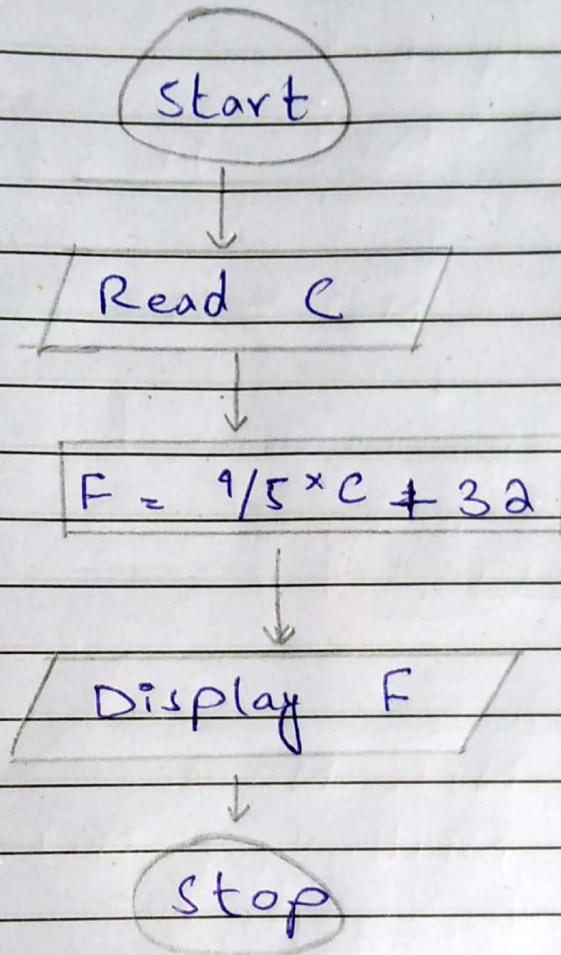 Start
Read C
F = 9/5 * C + 32
Display F
Stop